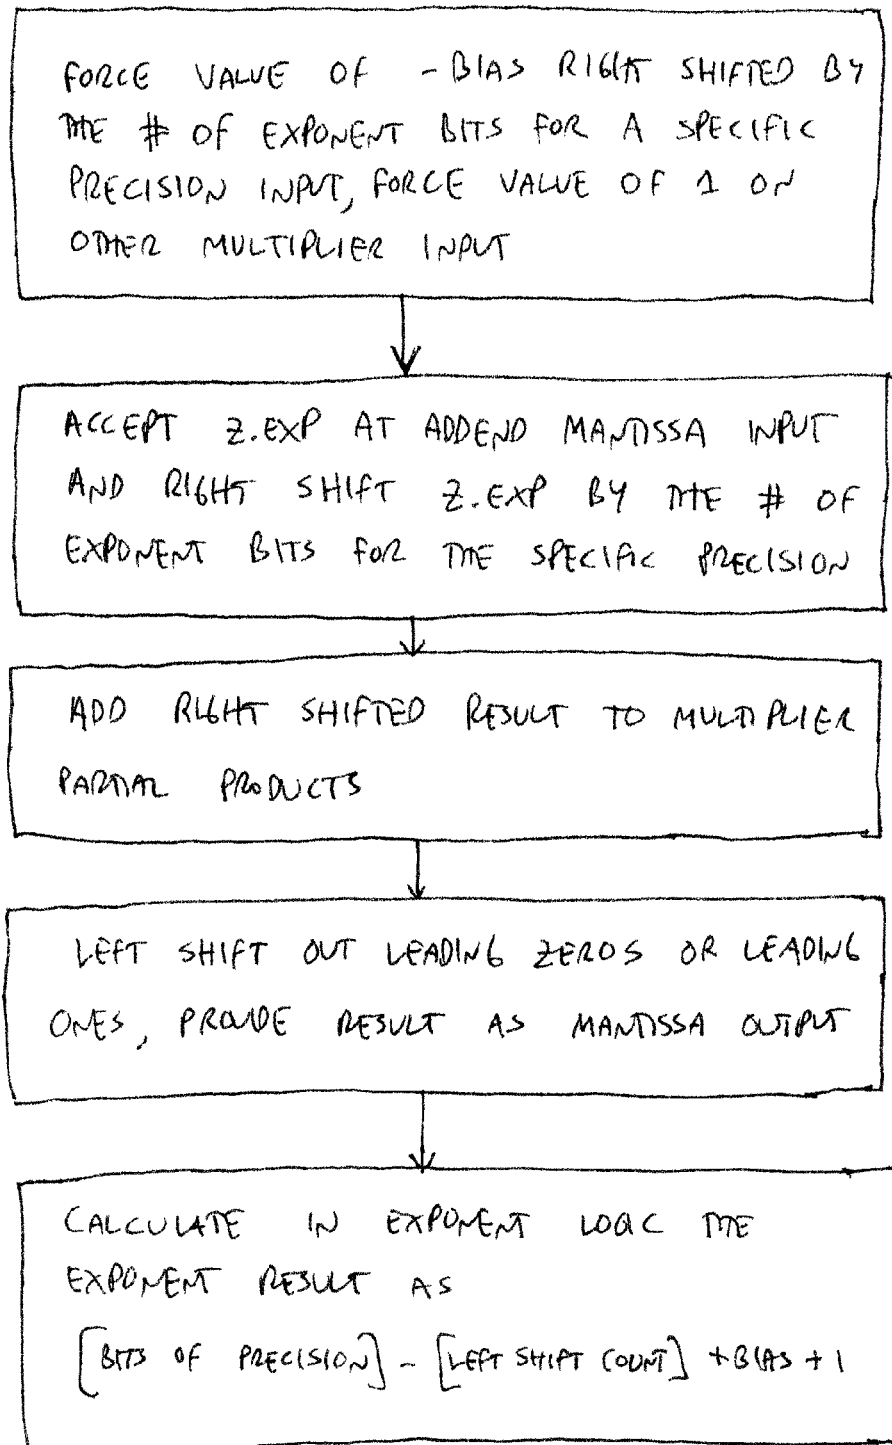 FORCE VALUE OF -BIAS RIGHT SHIFTED BY
THE # OF EXPONENT BITS FOR A SPECIFIC
PRECISION INPUT, FORCE VALUE OF 1 ON
OTHER MULTIPLIER INPUT
ACCEPT Z.EXP AT ADDEND MANTISSA INPUT
AND RIGHT SHIFT Z.EXP BY THE # OF
EXPONENT BITS FOR THE SPECIFIC PRECISION
ADD RIGHT SHIFTED RESULT TO MULTIPLIER
PARTIAL PRODUCTS
LEFT SHIFT OUT LEADING ZEROS OR LEADING
ONES, PROVIDE RESULT AS MANTISSA OUTPUT
CALCULATE IN EXPONENT LOGIC THE
EXPONENT RESULT AS
[BITS OF PRECISION] - [LEFT SHIFT COUNT] + BIAS + 1